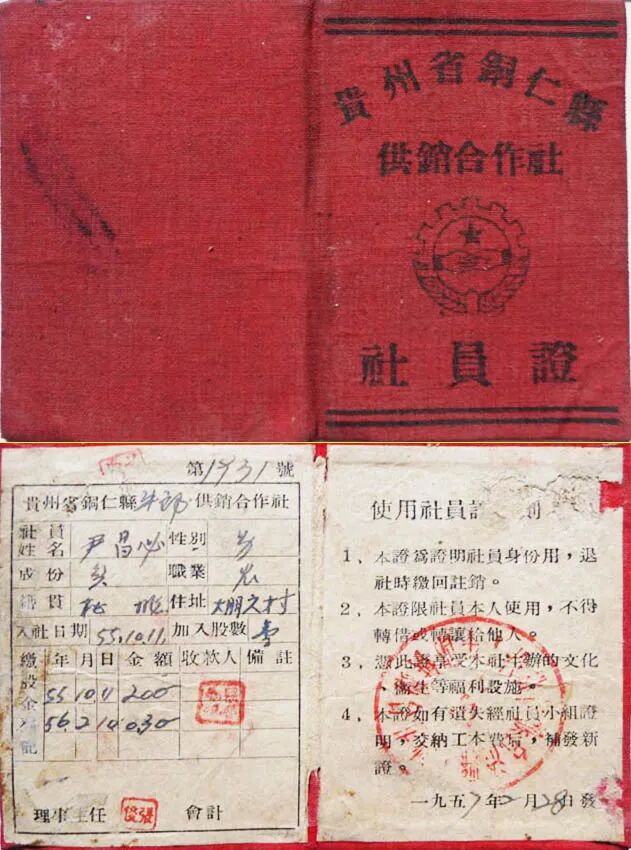 貴州省銅仁縣
供銷合作社
社員證
第1931號
貴州省銅仁縣牛郎供銷合作社
社員姓名 尹昌 性別 男
成份 貧 職業 农
籍貫 松桃 住址 村
入社日期 55.10.11 加入股數 壹
繳股金登記 年 月 日 金額 收款人 備註
55 10 11 2.00
56 2 10 0.30
理事主任 會計
使用社員證 則
1、本證為證明社員身份用，退
社時繳回註銷。
2、本證限社員本人使用，不得
轉借或轉讓給他人。
3、憑此證享受本社主辦的文化
、衛生等福利設施。
4、本證如有遺失經社員小組證
明，交納工本費后，補發新
證。
一九五7年2月28日發